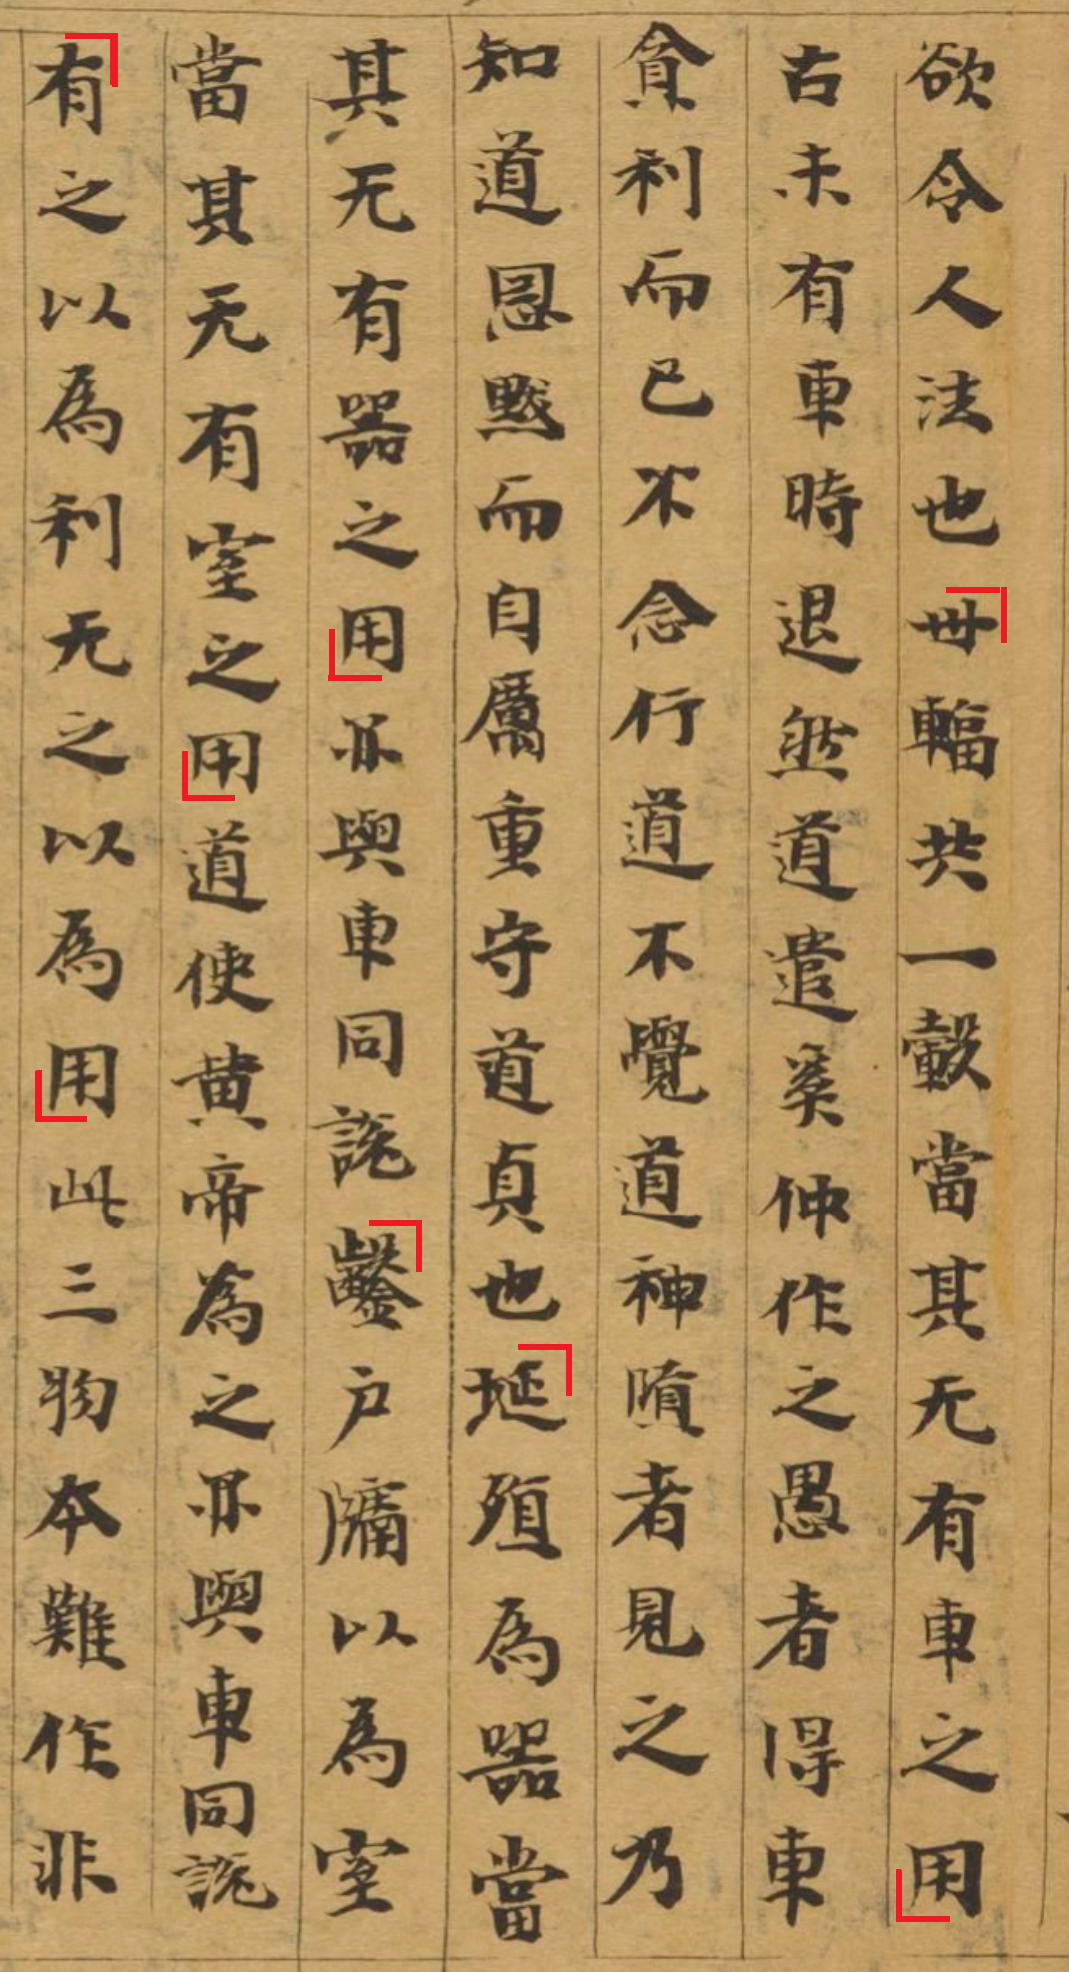 欲令人法也卅輻共一轂當其无有車之用
古未有車時退然道遣奚仲作之愚者得車
貪利而已不念行道不覺道神隤者見之乃
知道恩黙而自厲重守道真也埏殖為器當
其无有器之用亦與車同說鑿戶牖以為室
當其无有室之用道使黄帝為之亦與車同說
有之以為利无之以為用此三物本難作非